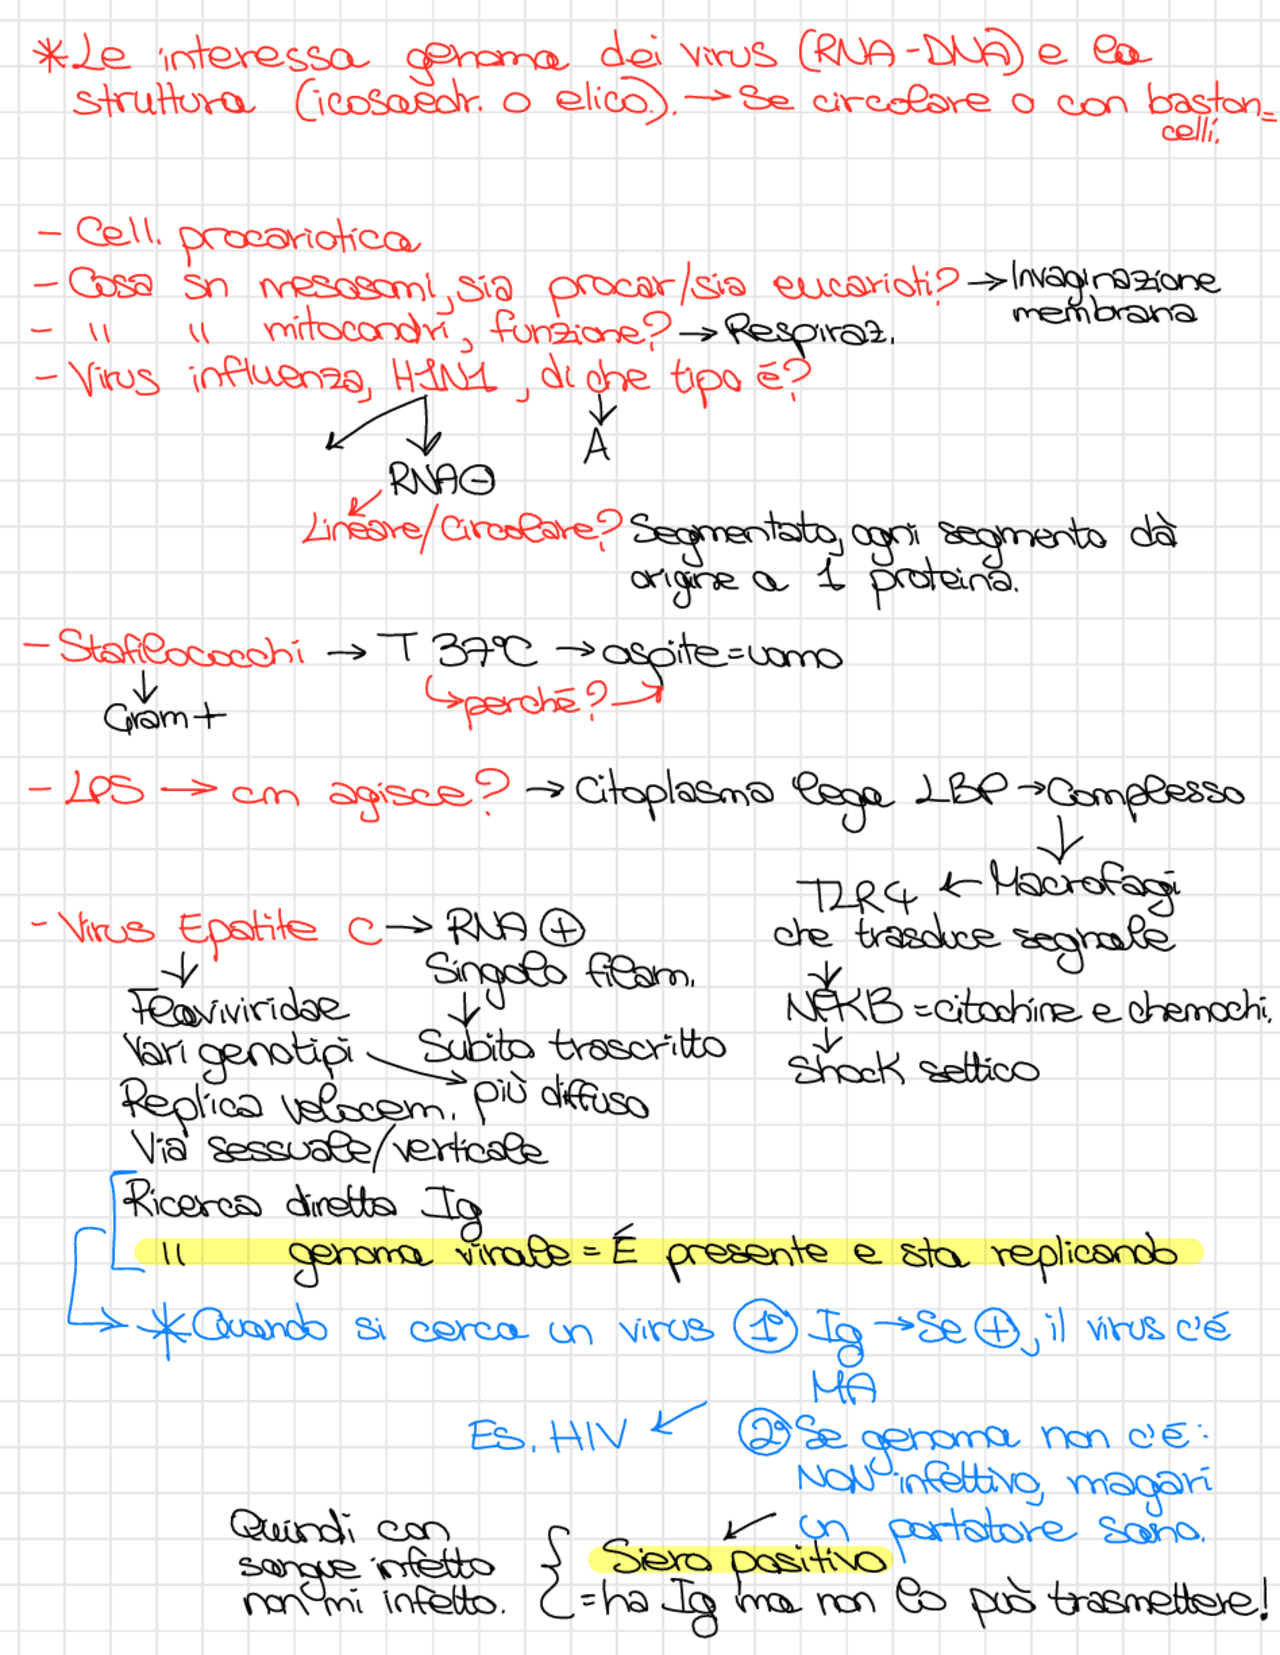 *Le interessa genoma dei virus (RNA-DNA) e la
struttura (icosaedr. o elico.). → Se circolare o con baston=
celli.
- Cell. procariotica
- Cosa sn mesosomi, sia procar/sia eucarioti? → Invaginazione
membrana
- " " mitocondri, funzione? → Respiraz.
- Virus influenza, H1N1, di che tipo è?
A
RNA⊖
Lineare/Circolare? Segmentato, ogni segmento dà
origine a 1 proteina.
- Stafilococchi → T 37°C → ospite=uomo
↳ perché?
Gram+
- LPS → cm agisce? → Citoplasma lega LBP → Complesso
TLR4 ← Macrofagi
che trasduce segnale
NFKB = citochine e chemochi.
Shock settico
- Virus Epatite C → RNA ⊕
Singolo filam.
Flaviviridae
Vari genotipi
Subito trascritto
più diffuso
Replica velocem.
Via sessuale/verticale
Ricerca diretta Ig
" genoma virale = È presente e sta replicando
*Quando si cerca un virus 1° Ig → Se ⊕, il virus c'è
MA
Es. HIV ← 2° Se genoma non c'è:
NON infettivo, magari
un portatore sano.
Quindi con
sangue infetto
non mi infetto.
Siero positivo
= ha Ig ma non lo può trasmettere!